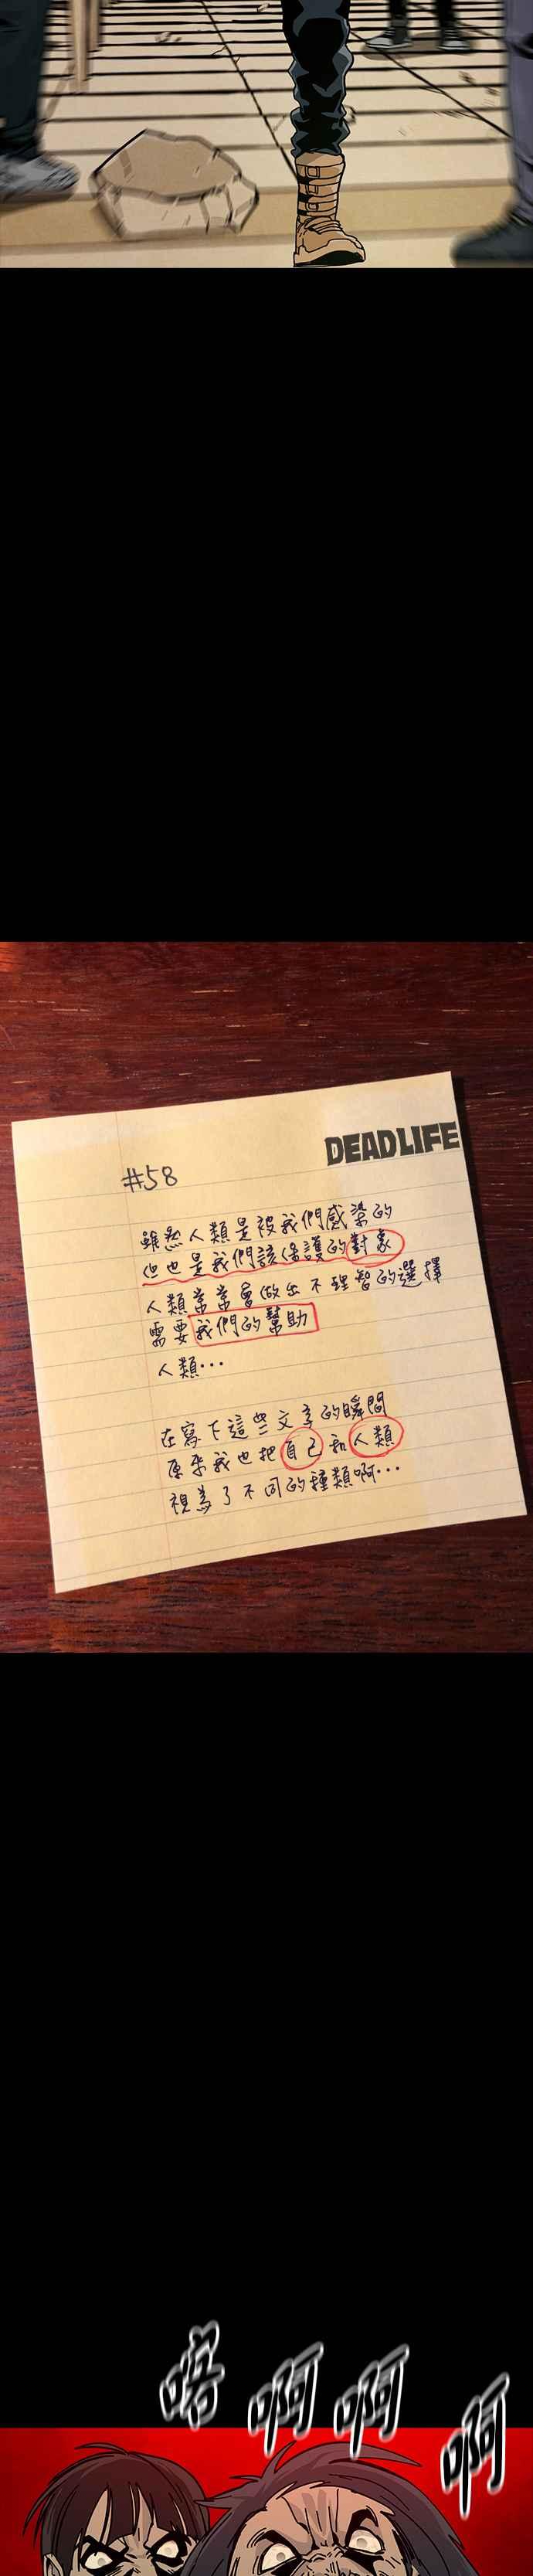 DEAD LIFE
#58
雖然人類是被我們感染的
但也是我們該保護的對象
人類常常會做出不理智的選擇
需要我們的幫助
人類⋯
在寫下這些文字的瞬間
原來我也把自己和人類
視為了不同的種類啊⋯
唔啊啊啊